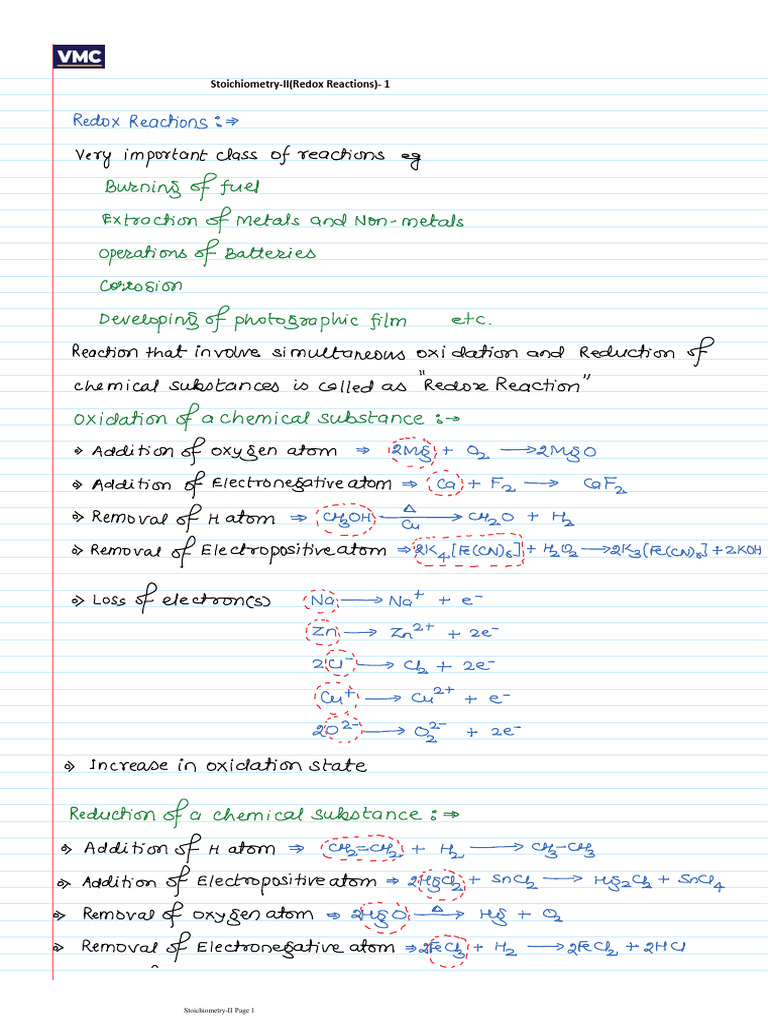 VMC
Stoichiometry-II(Redox Reactions)- 1
Redox Reactions :⇒
Very important class of reactions eg
Burning of fuel
Extraction of Metals and Non-metals
Operations of Batteries
Corrosion
Developing of photographic film etc.
Reaction that involve simultaneous oxidation and Reduction of
chemical substances is called as "Redox Reaction"
Oxidation of a chemical substance :→
⇒ Addition of oxygen atom ⇒ 2Mg + O₂ ⟶ 2MgO
⇒ Addition of Electronegative atom ⇒ Ca + F₂ ⟶ CaF₂
⇒ Removal of H atom ⇒ CH₃OH —Δ/Cu→ CH₂O + H₂
⇒ Removal of Electropositive atom ⇒ 2K₄[Fe(CN)₆] + H₂O₂ ⟶ 2K₃[Fe(CN)₆] + 2KOH
⇒ Loss of electron(s) Na ⟶ Na⁺ + e⁻
Zn ⟶ Zn²⁺ + 2e⁻
2Cl⁻ ⟶ Cl₂ + 2e⁻
Cu⁺ ⟶ Cu²⁺ + e⁻
2O²⁻ ⟶ O₂²⁻ + 2e⁻
⇒ Increase in oxidation state
Reduction of a chemical substance :⇒
⇒ Addition of H atom ⇒ CH₂=CH₂ + H₂ ⟶ CH₃-CH₃
⇒ Addition of Electropositive atom ⇒ 2HgCl₂ + SnCl₂ ⟶ Hg₂Cl₂ + SnCl₄
⇒ Removal of oxygen atom ⇒ 2HgO —Δ→ Hg + O₂
⇒ Removal of Electronegative atom ⇒ 2FeCl₃ + H₂ ⟶ 2FeCl₂ + 2HCl
Stoichiometry-II Page 1